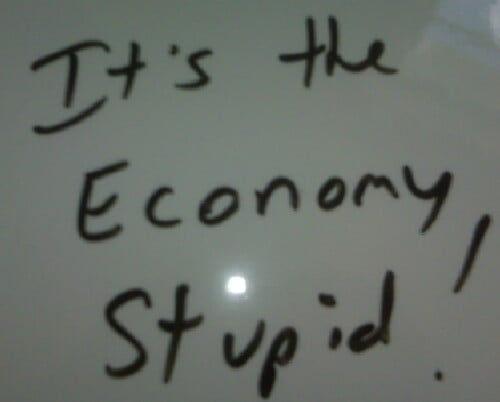 It's the
Economy,
Stupid!